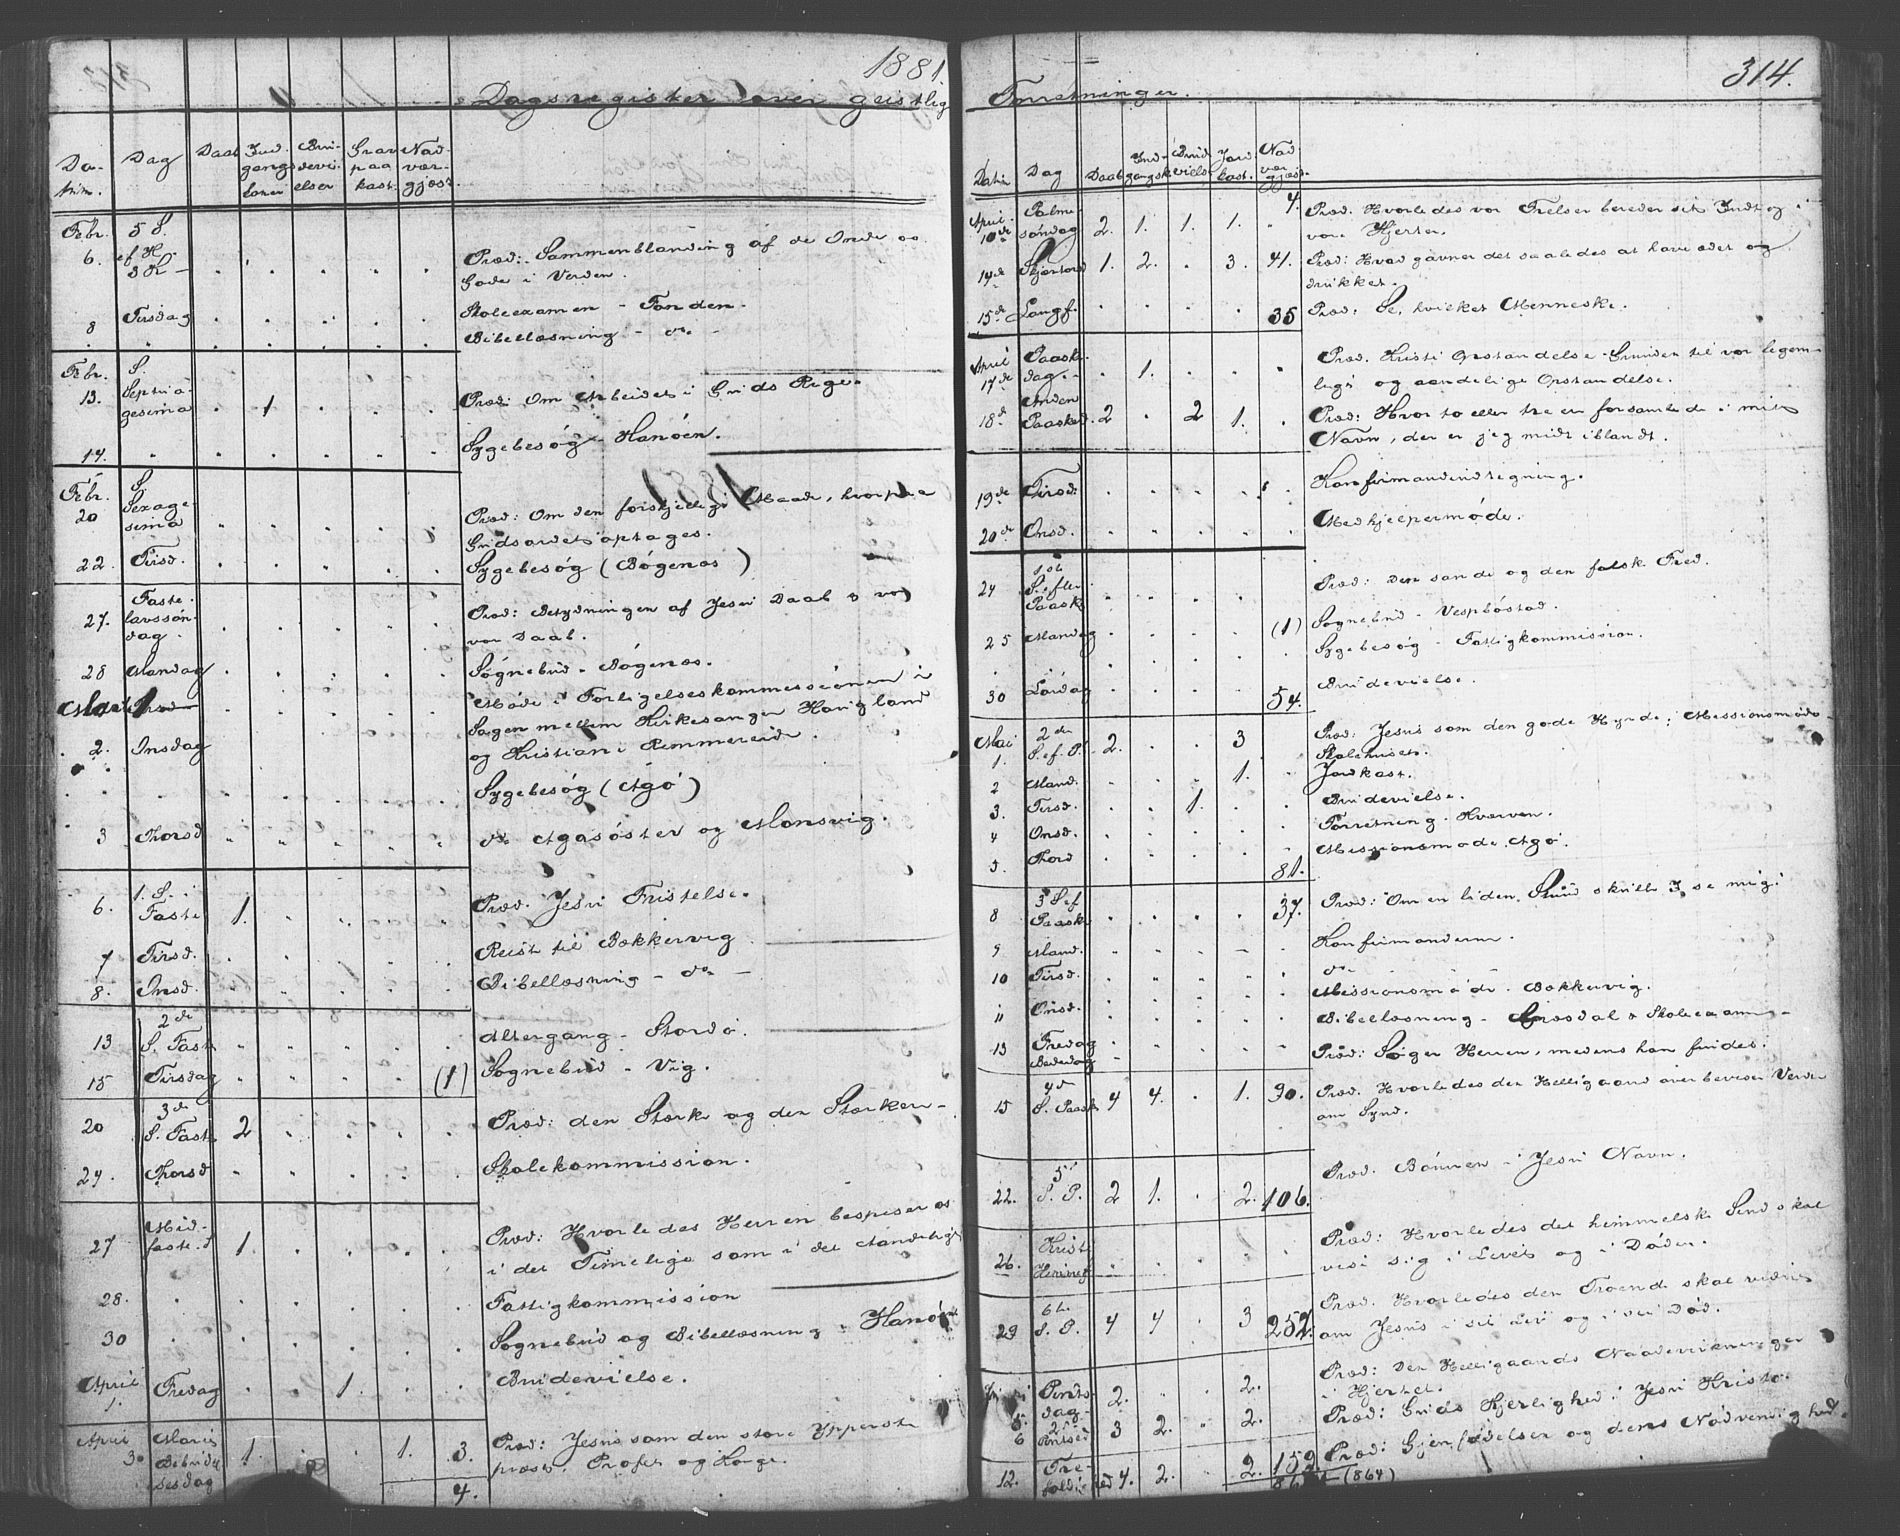 1881.
Dagsregister over geistlig
Datum. Dag Daab Indgangskoner Brudevielser Grav paakast. Nadvergjæst.
Febr. 6. 5 S. ef. H. 3 K. Præd: Sammenblanding af de Onde og
Gode i Verden.
8 Tirsdag Skoleexamen - Fonden.
Bibellæsning - do -
Febr. 13. S. Septuagesima 1 Præd: Om Arbeidet i Guds Rige.
14. Sygebesøg - Hanøen.
Febr. 20 S. Sexagesima Præd: Om den forskjellige Maade, hvorpaa
Gudsordet optages.
22. Tirsd. Sygebesøg (Bøgenæs)
27. Fastelavssøndag Præd: Betydningen af Jesu Daab & vor
vor Daab.
28 Mandag Søgnebud - Bøgenæs.
Marts 1
Møde i Forligelseskommissionen i
Sagen mellem Kirkesanger Haugland
2. Onsdag og Kristian i Remmereide.
Sygebesøg (Agø)
3 Thorsd do Agasøster og Monsvig.
6. 1. S. i Faste 1. Præd. Jesu Fristelse.
7 Tirsd. Reist til Bækkervig
8. Onsd. Bibellæsning - do -
13 2de S. Faste Altergang - Stordø.
15 Tirsdag (1) Sognebud - Vig.
20 3de S. Faste 2 Præd: den Stærke og den Stærkere -
24. Thorsd Skolekommission.
27 Midfaste S 1. Præd: Hvorledes Herren bespiser os
i det Timelige som i det Aandelige
28. Fattigkommission
30 Sognebud og Bibellæsning - Hanøen
April 1. Fredag 1. Brudevielse.
April 30 Mariæ Bebudelsesdag 1. 1. 3. Præd: Jesus som den store Ypperste
præst, Profet og Konge.
4.
314.
Forretninger.
Datum Dag Daab Indgangsk Brudviels Jordkast. Nadvergjæst.
4.
April 10de Palmesøndag 2. 1. 1. 1. Præd: Hvorledes vor Frelser bereder sit Indtog i
vore Hjerter.
14de Skjærtorsd 1. 2. 3. 41. Præd: Hvad gavner det saaledes at have ædet og
drukket.
15de Langf. 35 Præd: Se, hvilket Menneske.
April 17de Paaskedag. 1. Præd. Kristi Opstandelse Grunden til vor legem-
lige og aandelige Opstandelse.
18d Anden Paasked. 2 2 1. Præd: Hvor to eller tre er forsamlede i mit
Navn, der er jeg midt iblandt.
19de Tirsd: Konfirmandindtegning.
20de Onsd. Medhjelpermøde.
24 1ste S. efter Paaske Præd: Den sande og den falske Fred.
25 Mandag (1) Sognebud - Vespbøstad.
Sygebesøg - Fattigkommission.
30 Lørdag 54. Brudevielse.
Mai 1. 2de S. ef. P. 2. 3 Præd: Jesus som den gode Hyrde; Missionsmøde
Skolehuset.
2 Mand. 1. Jordkast.
3. Tirsd. 1. Brudevielse.
4 Onsd. Forretning. Hværven.
5. Thord 81. Missionsmøde. Agø.
8 3 S ef Paaske 37. Præd: Om en liden Stund skulle I se mig.
9 Mand. Konfirmanderne.
10 Tirsd. do
11 Onsd. Missionsmøde. Bækkervig.
Bibellæsning - & Skoleexamen -
13 Fredag Bededag Præd: Søger Herren, medens han findes.
15 4d S. Paaske 4 4. 1. 30. Præd. Hvorledes den Helligaand overbeviser Verden
om Synd.
22. 5te S. P. 2 1. 2. 106. Præd. Bønnen i Jesu Navn.
26. Kristi Himmelf Præd: Hvorledes det himmelske Sind skal
vise sig i Livet og i Døden.
29 6te S. P. 4 4 3 252. Præd. Hvorledes den Troende skal vidne
om Jesus i sit Liv og i sin Død.
Juni 5. Pintsdag 2. 2. Præd: Den Helligaands Naadevirkninger
i Hjertet.
6 2. Pintsd 3 2. 2. Præd: Guds Kjerlighed i Jesu Kristo.
12. Trefoldighed 4. 2. 2. 152. Præd: Gjenfødelsen og dens Nødvendighed.
(864)